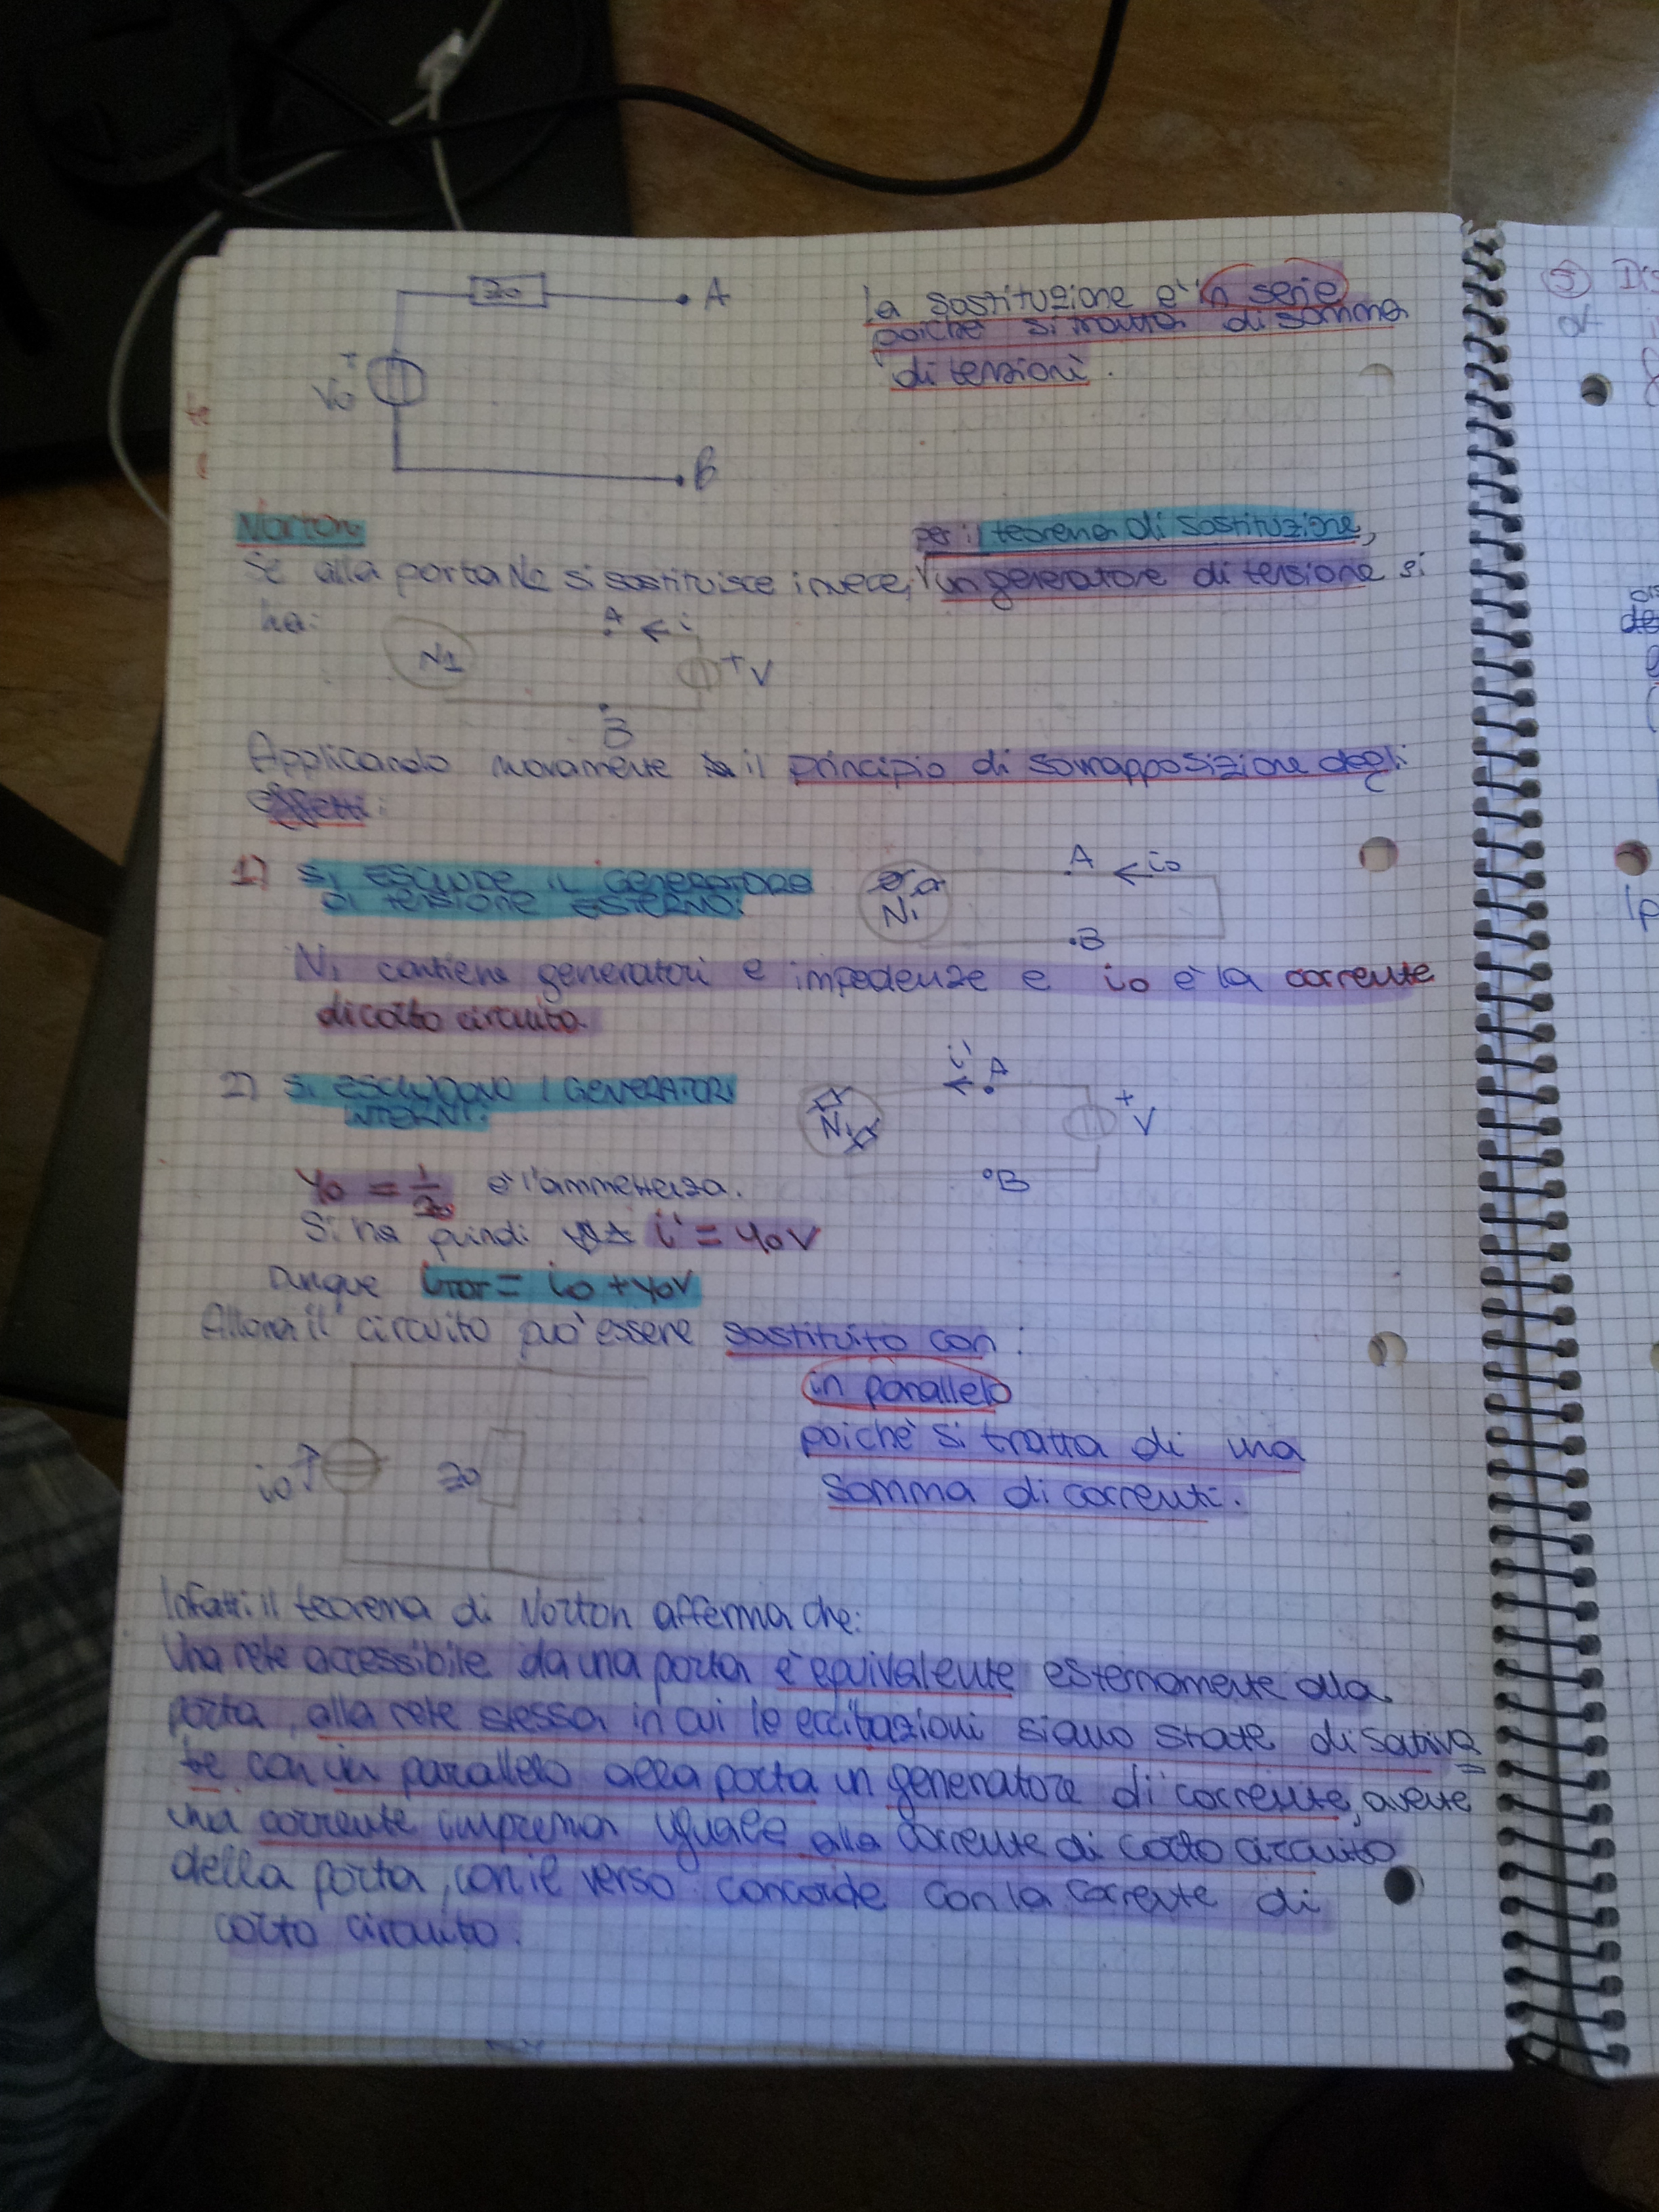 Z0
A
La sostituzione è in serie
poichè si tratta di somma
di tensioni.
+
V0
B
Norton
per il teorema di sostituzione,
Se alla porta N2 si sostituisce invece, un generatore di tensione si
ha:
A ← i
N1
+ V
B
Applicando nuovamente il principio di sovrapposizione degli
effetti:
1) SI ESCLUDE IL GENERATORE
DI TENSIONE ESTERNO:
A ← i0
N1
B
N1 contiene generatori e impedenze e i0 è la corrente
di corto circuito.
2) SI ESCLUDONO I GENERATORI
INTERNI:
i' A
N1
+
V
B
Y0 = 1/Z0 è l'ammettenza.
Si ha quindi i' = Y0V
Dunque iTOT = i0 + Y0V
Allora il circuito può essere sostituito con:
in parallelo
poichè si tratta di una
somma di correnti.
i0
Z0
Infatti il teorema di Norton afferma che:
Una rete accessibile da una porta è equivalente esternamente alla
porta, alla rete stessa in cui le eccitazioni siano state disattiva=
te con in parallelo alla porta un generatore di corrente, avente
una corrente impressa uguale alla corrente di corto circuito
della porta, con il verso concorde con la corrente di
corto circuito.